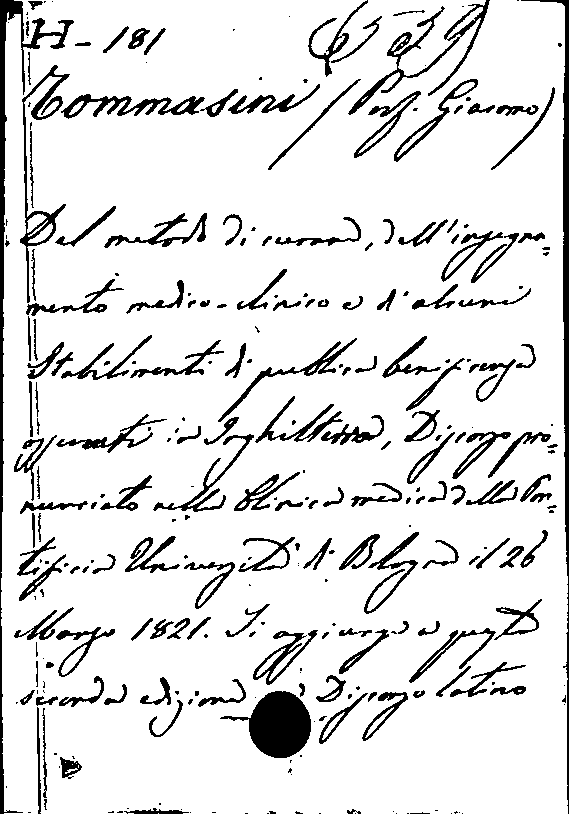 H - 181 6539
Tommasini (Prof. Giacomo)
Del metodo di curare, dell'insegna=
mento medico-clinico e d'alcuni
Stabilimenti di pubblica beneficenza
osservati in Inghilterra, Discorso pro=
nunciato nella Clinica medica della Pon=
tificia Università di Bologna il 26
Marzo 1821. Si aggiunge a questa
seconda edizione Discorso latino